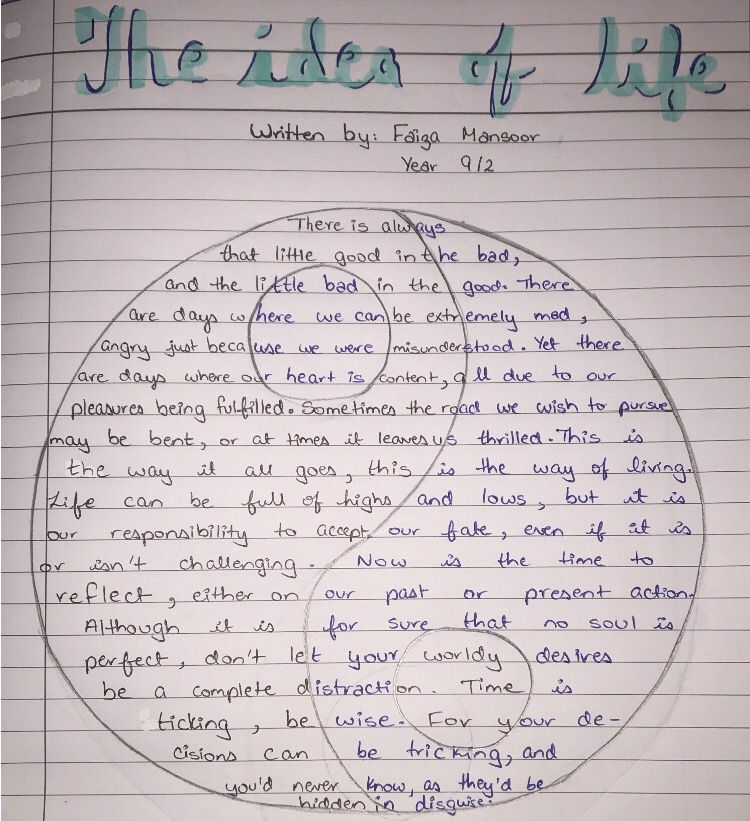 The idea of life
Written by: Faiga Mansoor
Year 9/2
There is always
that little good in the bad,
and the little bad in the good. There
are days where we can be extremely mad,
angry just because we were misunderstood. Yet there
are days where our heart is content, all due to our
pleasures being fulfilled. Sometimes the road we wish to pursue
may be bent, or at times it leaves us thrilled. This is
the way it all goes, this is the way of living.
Life can be full of highs and lows, but it is
our responsibility to accept our fate, even if it is
or isn't challenging. Now is the time to
reflect, either on our past or present action.
Although it is for sure that no soul is
perfect, don't let your worldy desires
be a complete distraction. Time is
ticking, be wise. For your de-
cisions can be tricking, and
you'd never know, as they'd be
hidden in disguise.